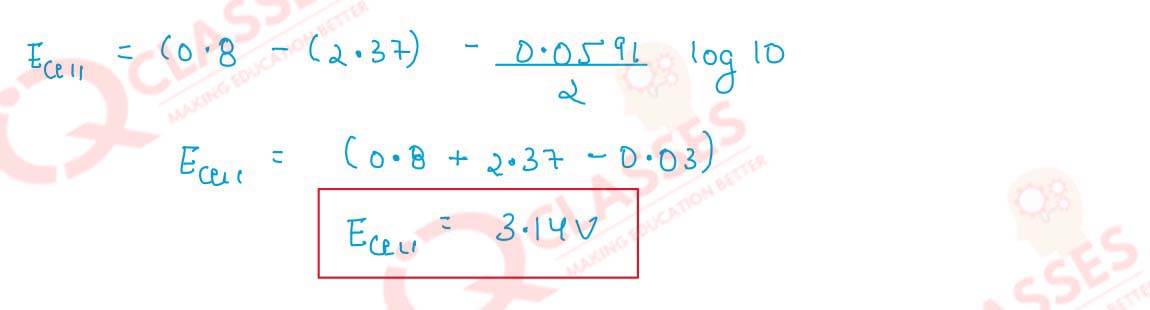 E_cell = (0.8 - (2.37) - 0.0591/2 log 10
E_cell = (0.8 + 2.37 - 0.03)
E_cell = 3.14V
CLASSES
MAKING EDUCATION BETTER
CLASSES
MAKING EDUCATION BETTER
ASSES